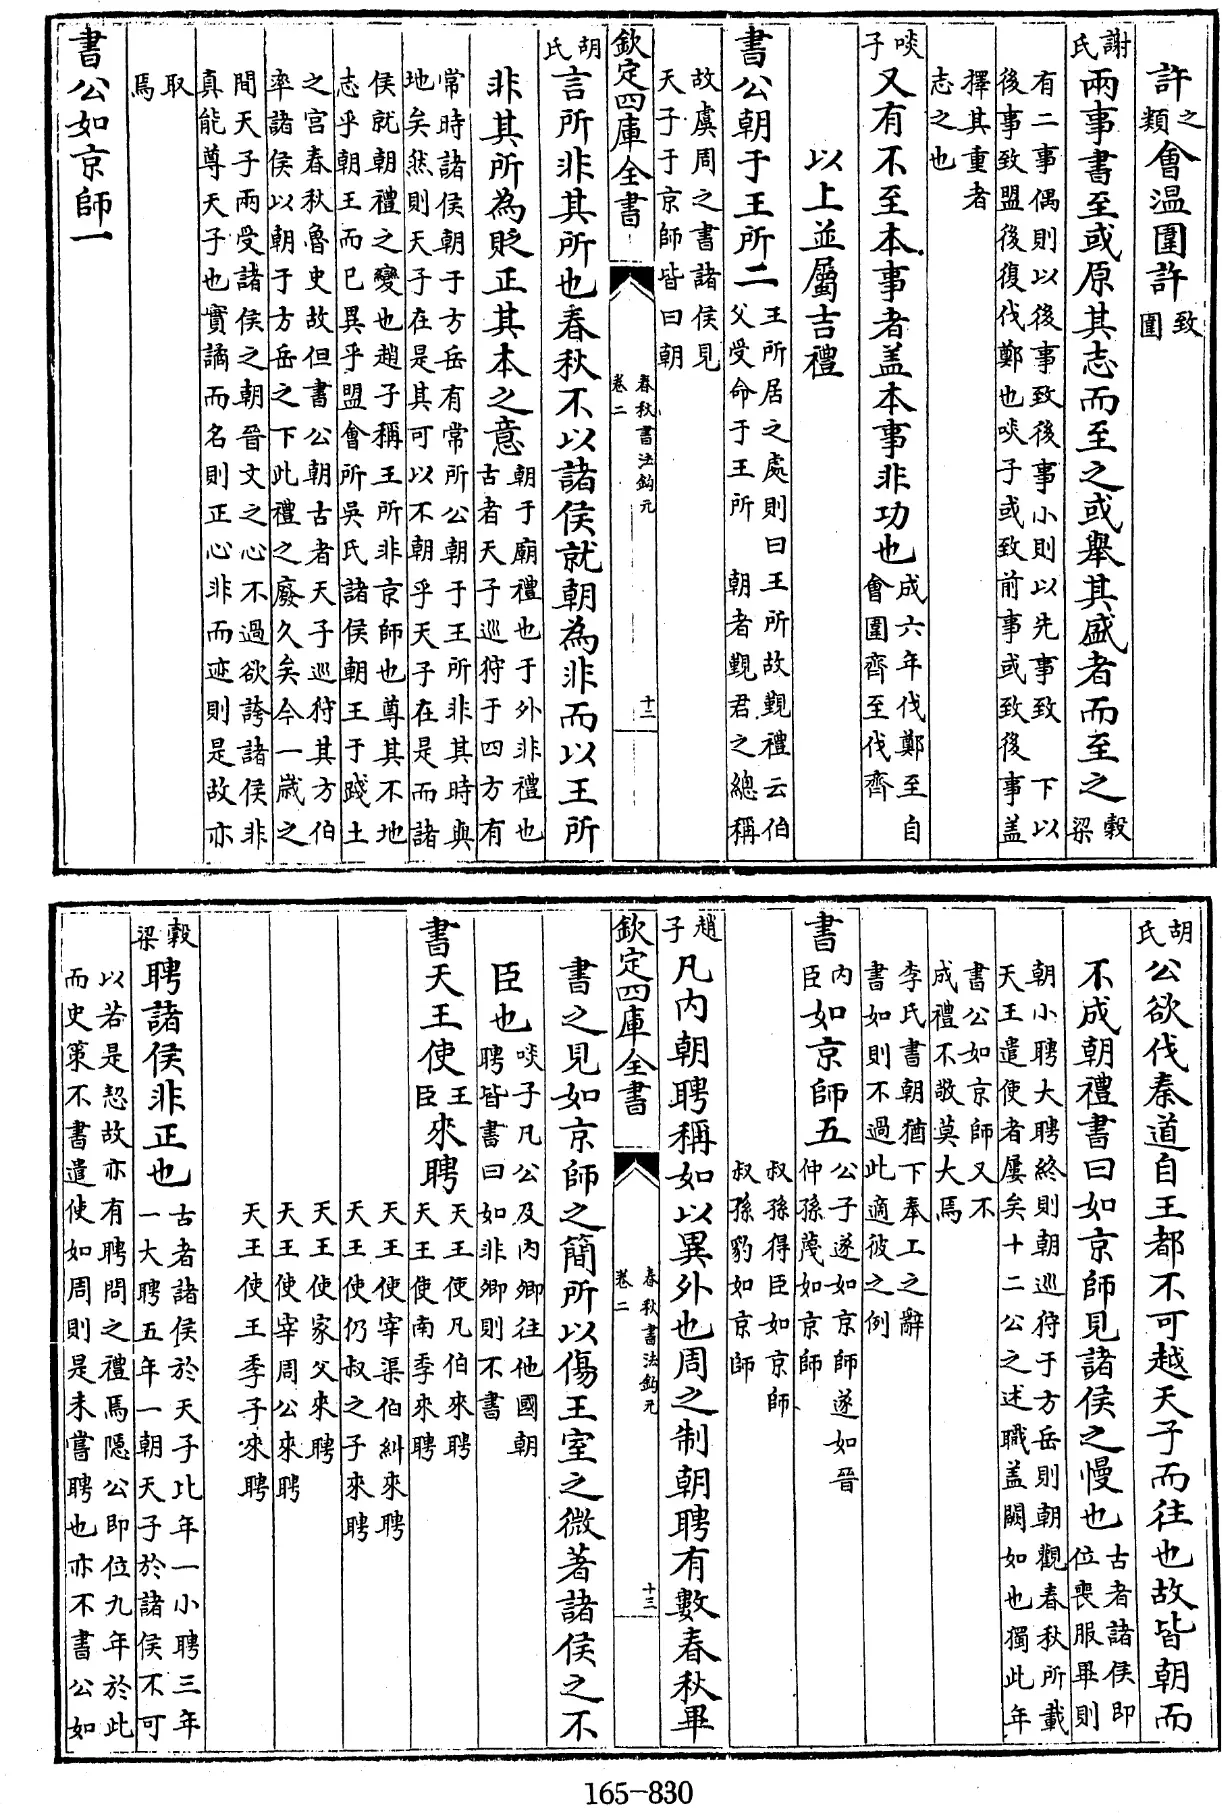 許之類會溫圍許致圍
謝氏兩事書至或原其志而至之或舉其盛者而至之穀梁
有二事偶則以後事致後事小則以先事致 下以
後事致盟後復伐鄭也啖子或致前事或致後事盖
擇其重者
志之也
啖子又有不至本事者盖本事非功也成六年伐鄭至自
會圍齊至伐齊
以上並屬吉禮
書公朝于王所二王所居之處則曰王所故覲禮云伯
父受命于王所 朝者覲君之總稱
故虞周之書諸侯見
天子于京師皆曰朝
欽定四庫全書
春秋書法鈎元
卷二
十二
胡氏言所非其所也春秋不以諸侯就朝為非而以王所
非其所為貶正其本之意朝于廟禮也于外非禮也
古者天子巡狩于四方有
常時諸侯朝于方岳有常所公朝于王所非其時與
地矣然則天子在是其可以不朝乎天子在是而諸
侯就朝禮之變也趙子稱王所非京師也尊其不地
志乎朝王而已異乎盟會所吳氏諸侯朝王于踐土
之宮春秋魯史故但書公朝古者天子巡狩其方伯
率諸侯以朝于方岳之下此禮之廢久矣今一歲之
間天子兩受諸侯之朝晉文之心不過欲誇諸侯非
真能尊天子也實譎而名則正心非而迹則是故亦
取
焉
書公如京師一
胡氏公欲伐秦道自王都不可越天子而往也故皆朝而
不成朝禮書曰如京師見諸侯之慢也古者諸侯即
位喪服畢則
朝小聘大聘終則朝巡狩于方岳則朝觀春秋所載
天王遣使者屢矣十二公之述職盖闕如也獨此年
書公如京師又不
成禮不敬莫大焉
李氏書朝猶下奉工之辭
書如則不過此適彼之例
書內臣如京師五公子遂如京師遂如晉
仲孫蔑如京師
叔孫得臣如京師
叔孫豹如京師
趙子凡內朝聘稱如以異外也周之制朝聘有數春秋畢
欽定四庫全書
春秋書法鈎元
卷二
十三
書之見如京師之簡所以傷王室之微著諸侯之不
臣也啖子凡公及內卿往他國朝
聘皆書曰如非卿則不書
書天王使王臣來聘天王使凡伯來聘
天王使南季來聘
天王使宰渠伯糾來聘
天王使仍叔之子來聘
天王使家父來聘
天王使宰周公來聘
天王使王季子來聘
穀梁聘諸侯非正也古者諸侯於天子比年一小聘三年
一大聘五年一朝天子於諸侯不可
以若是恝故亦有聘問之禮焉隱公即位九年於此
而史策不書遣使如周則是未嘗聘也亦不書公如
165-830